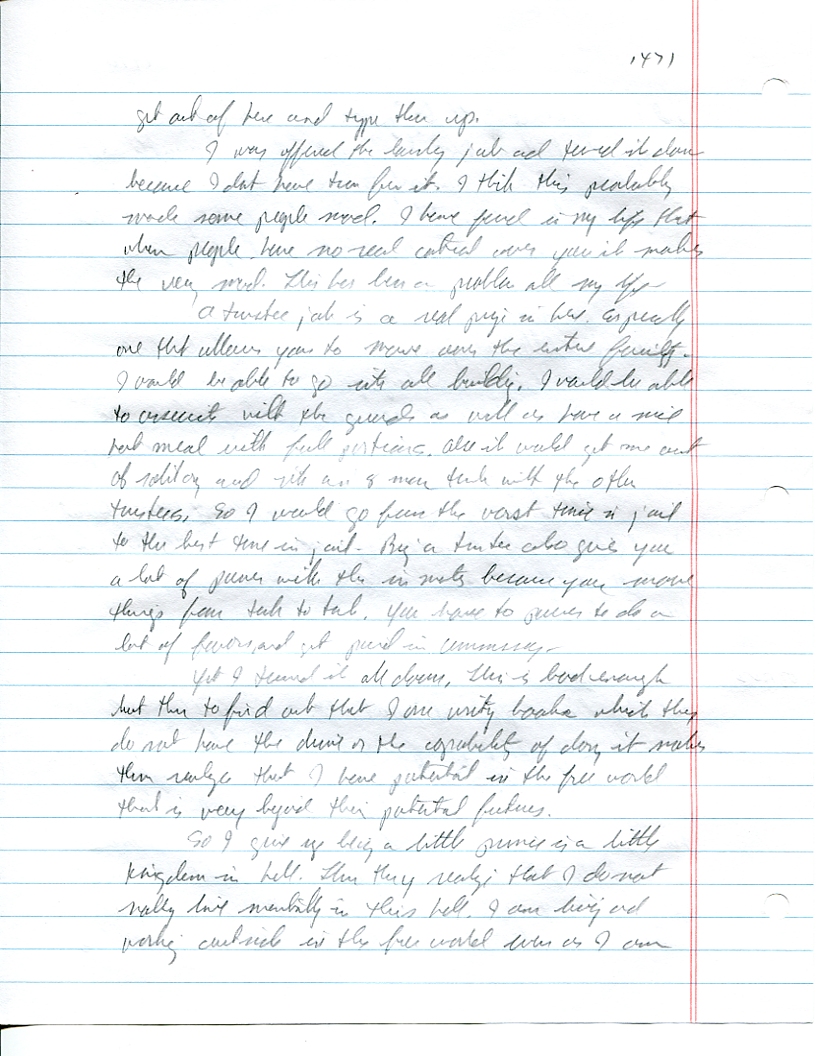 1471
get out of here and type them up.
I was offered the laundry job and turned it down
because I dont have time for it. I think this probably
made some people mad. I have found in my life that
when people have no real control over you it makes
the very mad. This has been a problem all my life
A trustee job is a real prize in here. Especially
one that allows you to move over the entire facility.
I would be able to go into all buildings. I would be able
to associate with the guards as well as have a nice
hot meal with full portions. Also it would get me out
of solitary and into an 8 man tank with the other
trustees. So I would go from the worst time in jail
to the best time in jail. Being a trustee also gives you
a lot of power with the inmates because you move
things from tank to tank. You have to power to do a
lot of favors and get paid in commissary.
Yet I turned it all down. This is bad enough
but then to find out that I am writing books which they
do not have the drive or the capability of doing it makes
them realize that I have potential in the free world
that is very beyond their potential futures.
So I give up being a little prince in a little
Kingdom in hell. Then they realize that I do not
really live mentally in this hell. I am living and
working outside in the free world even as I am